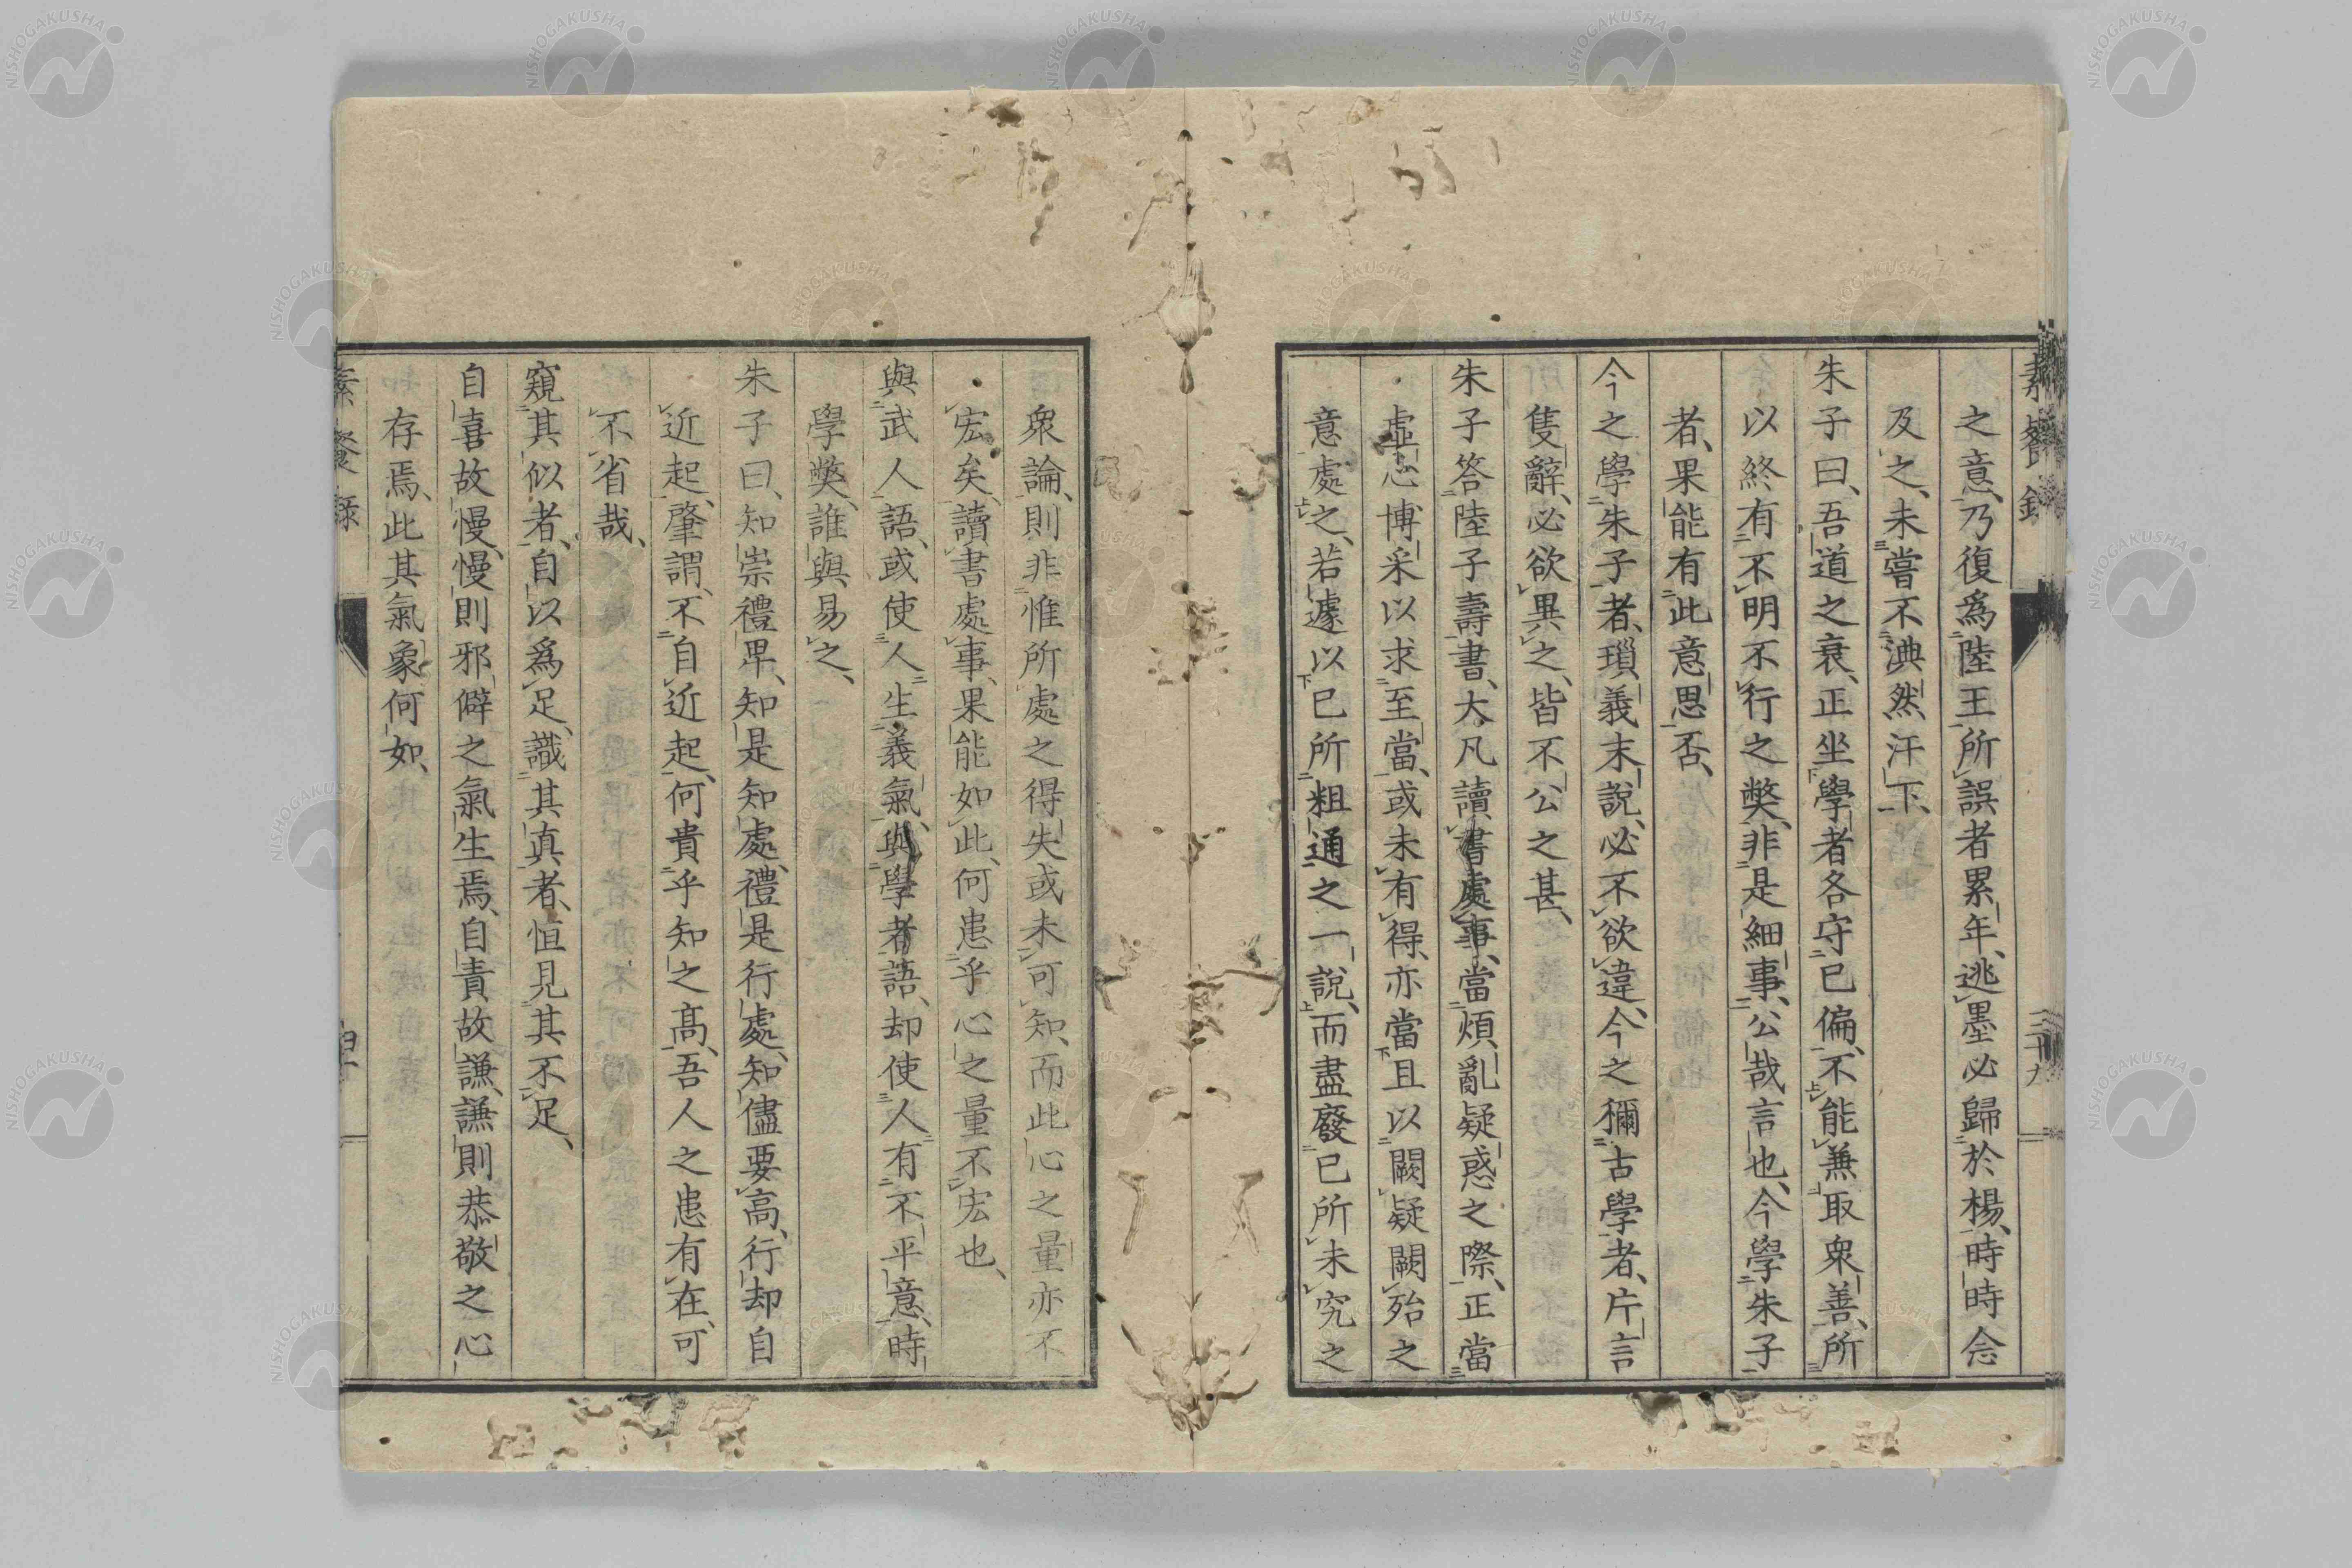 素餐録
之意、乃復爲陸王所誤者累年、逃墨必歸於楊、時時念
及之、未嘗不淟然汗下、
朱子曰、吾道之衰、正坐學者各守已偏、不能兼取衆善、所
以終有不明不行之獘、非是細事、公哉言也、今學朱子
者、果能有此意思否、
今之學朱子者、瑣義末說、必不欲違、今之獮古學者、片言
隻辭、必欲異之、皆不公之甚、
朱子答陸子壽書、大凡讀書處事、當煩亂疑惑之際、正當
虛心博采以求至當、或未有得、亦當且以闕疑闕殆之
意處之、若遽以已所粗通之一說、而盡廢已所未究之
衆論、則非惟所處之得失或未可知、而此心之量亦不
宏矣、讀書處事、果能如此、何患乎心之量不宏也、
與武人語、或使人生義氣、與學者語、却使人有不平意、時
學獘、誰與易之、
朱子曰、知崇禮卑、知是知處、禮是行處、知儘要高、行却自
近起、肇謂、不自近起、何貴乎知之高、吾人之患有在、可
不省哉、
窺其似者、自以爲足、識其真者、恒見其不足、
自喜故慢、慢則邪僻之氣生焉、自責故謙、謙則恭敬之心
存焉、此其氣象何如、
素餐録
NISHOGAKUSHA